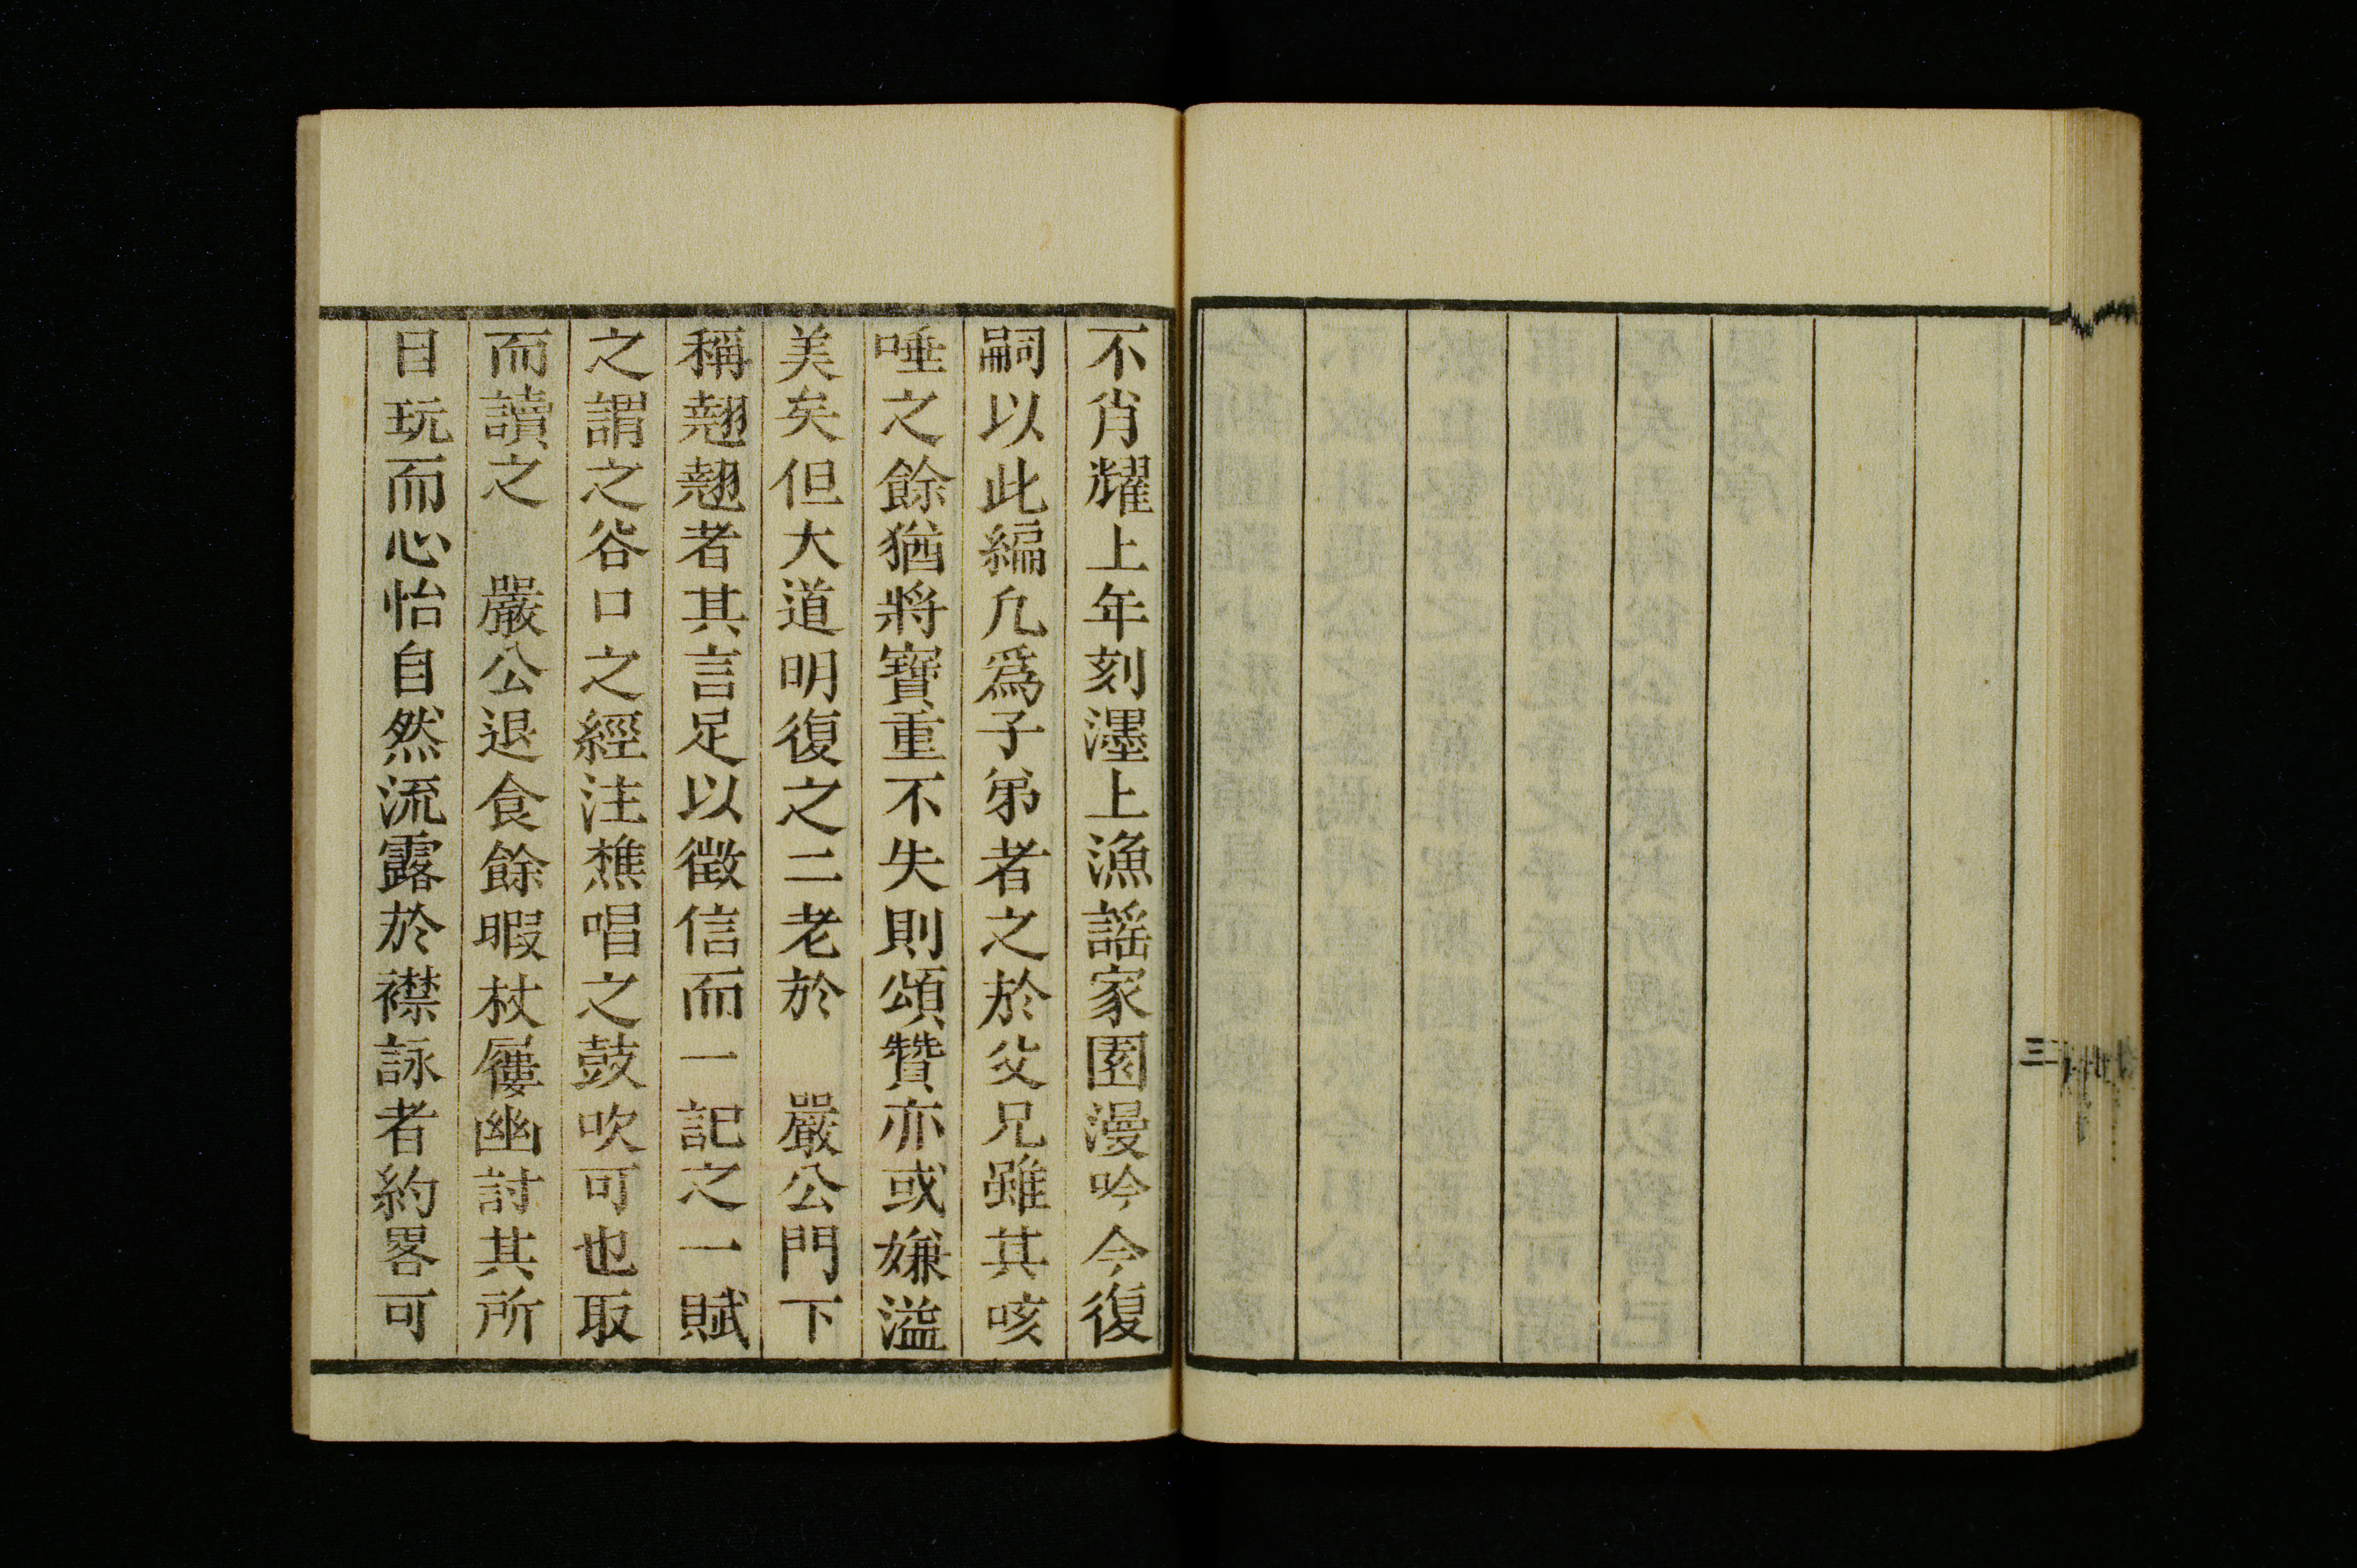 三
不肖耀上年刻濹上漁謡家園漫吟今復
嗣以此編凢爲子弟者之於父兄雖其咳
唾之餘猶將寶重不失則頌贊亦或嫌溢
美矣但大道明復之二老於　嚴公門下
稱翹翹者其言足以徵信而一記之一賦
之謂之谷口之經注樵唱之鼓吹可也取
而讀之　嚴公退食餘暇杖屨幽討其所
目玩而心怡自然流露於襟詠者約畧可